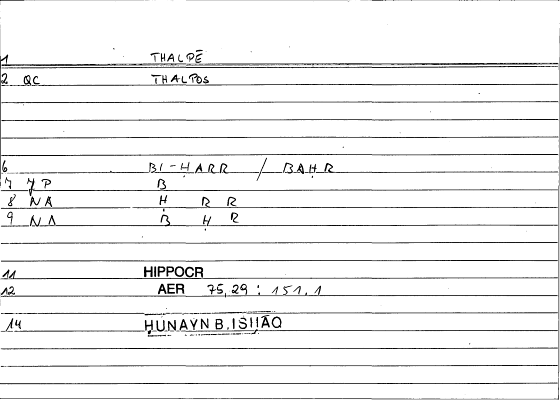 1 THALPĒ
2 QC THALPOS
6 BI-ḤARR / BAḤR
7 YP B
8 NA Ḥ R R
9 NA B Ḥ R
11 HIPPOCR
12 AER 75,29 : 151.1
14 ḤUNAYN B. ISḤĀQ